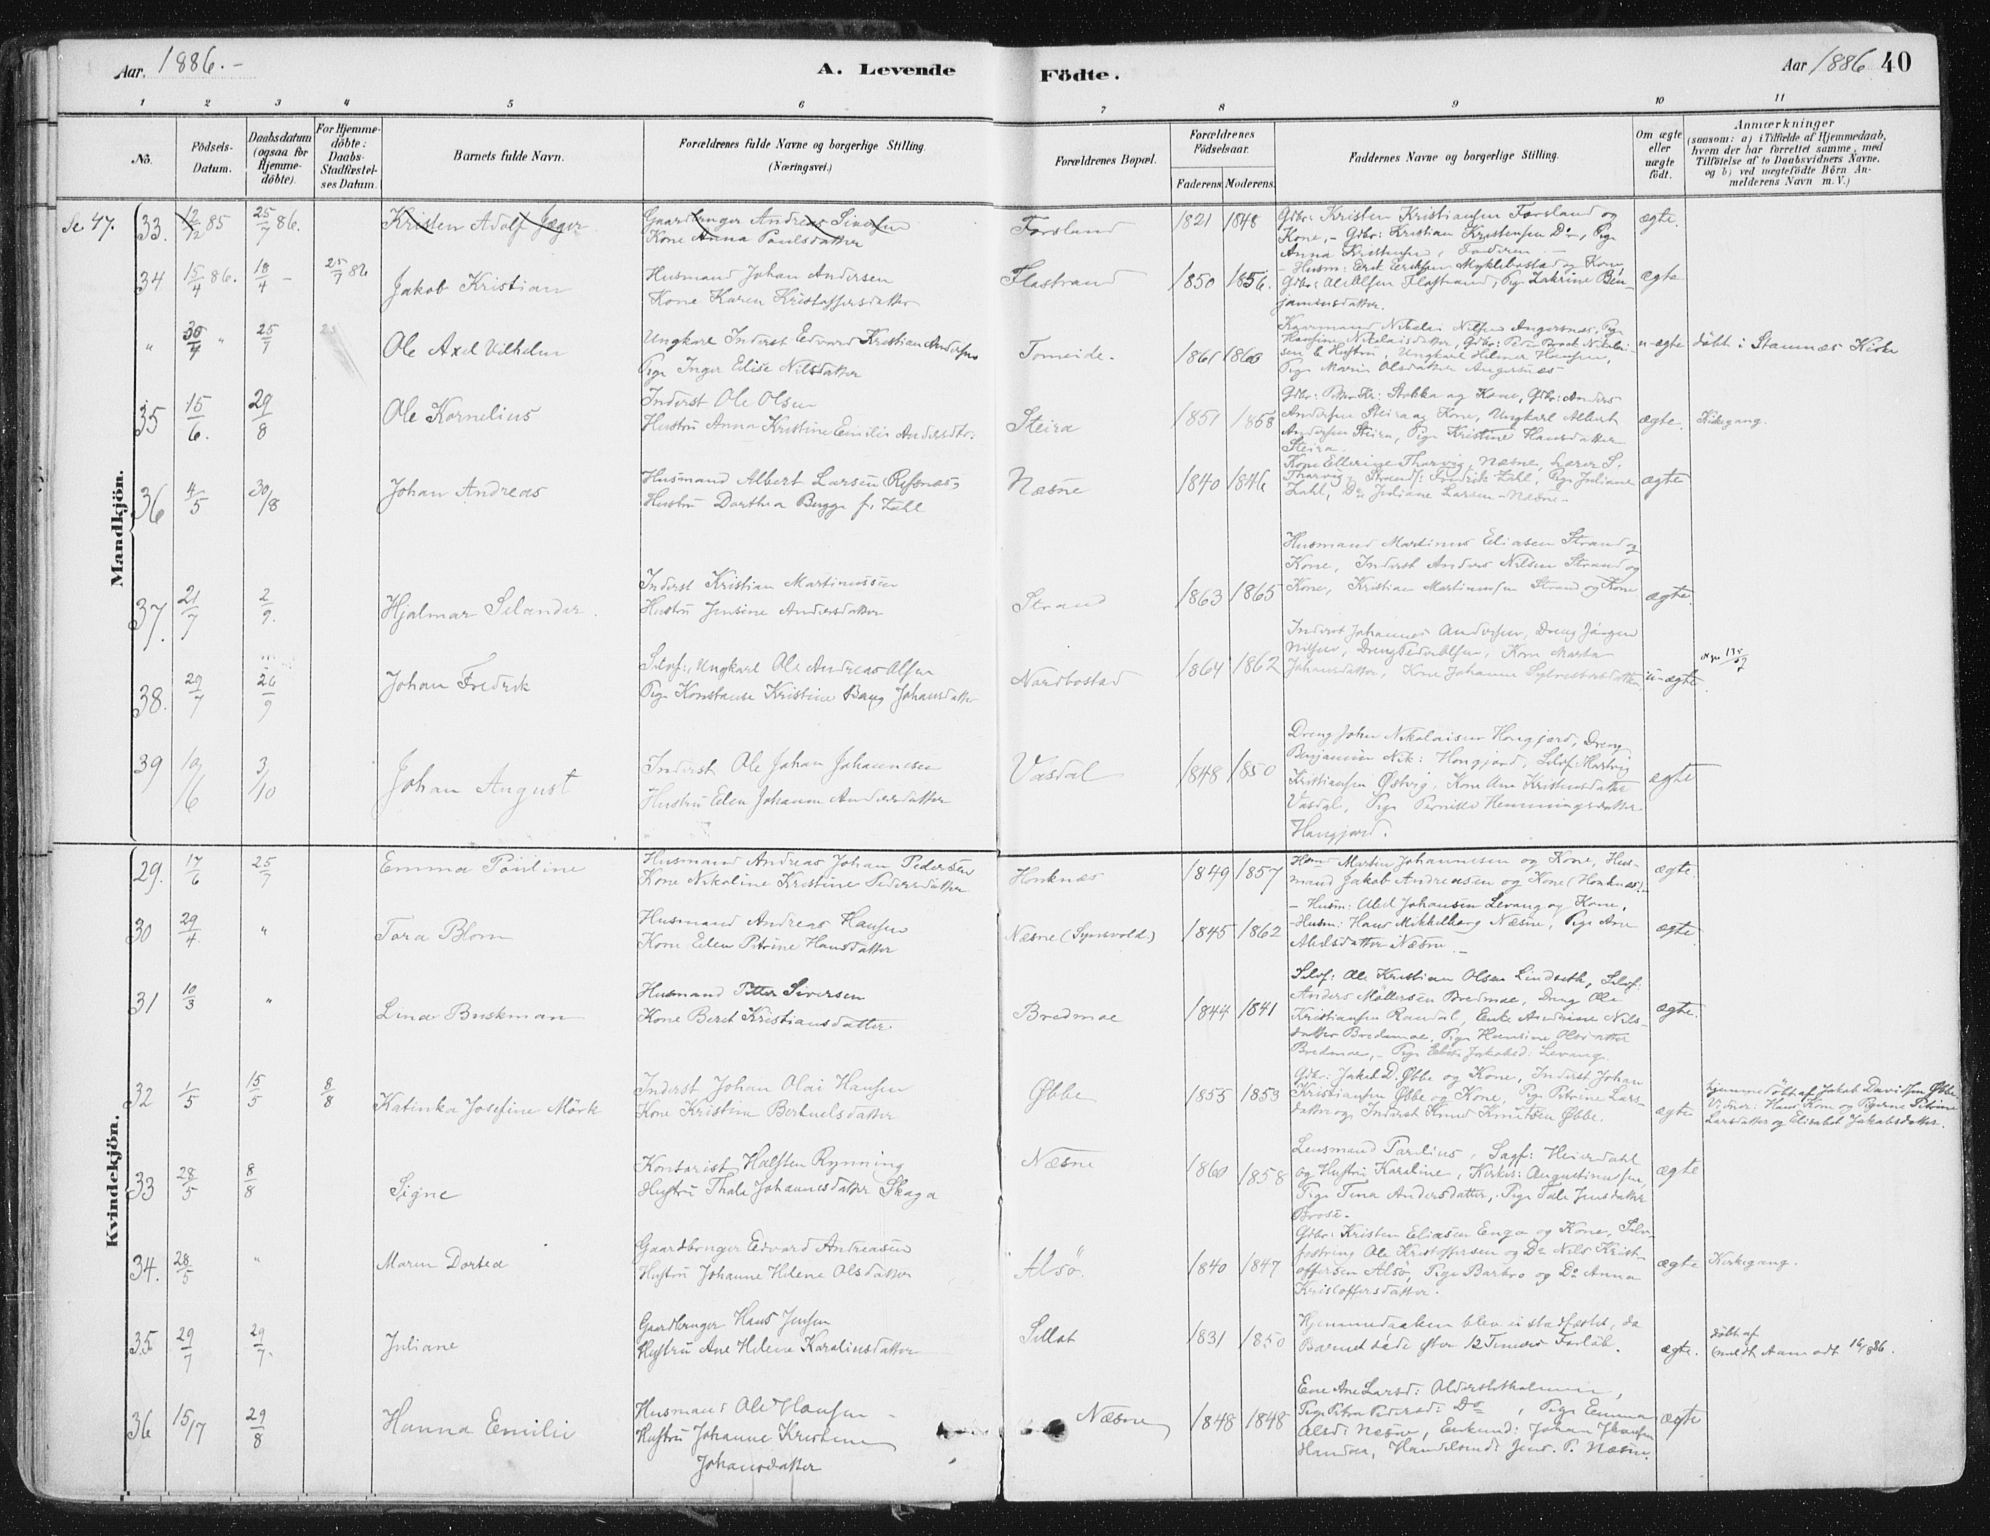 Aar. 1886.-
A. Levende
Födte.
Aar 1886
40
1 2 3 4 5 6 7 8 9 10 11
No.
Födsels-Datum.
Daabsdatum (ogsaa for Hjemme-döbte).
For Hjemme-döbte: Daabs-Stadfæstel-ses Datum.
Barnets fulde Navn.
Forældrenes fulde Navne og borgerlige Stilling.
(Næringsvei.)
Forældrenes Bopæl.
Forældrenes Födselsaar.
Faderens. Moderens.
Faddernes Navne og borgerlige Stilling.
Om ægte eller uægte födt.
Anmærkninger
(saasom: a) i Tilfælde af Hjemmedaab, hvem der har forrettet samme, med Tilföielse af to Daabsvidners Navne. og b) ved uægtefödte Börn An-melderens Navn m. V.)
Mandkjön.
Se 47. 33. 12/12 85 25/7 86. Kristen Adolf Jæger
Gaardbruger Andreas Simonsen
Kone Anna Paulsdatter
Forsland 1821 1848
Gdbr: Kristen Kristiansen Forsland og
Kone, - Gdbr: Kristian Kristensen Do, Pige
Anna Kristensen, Faderen -
ægte.
34 15/4 86. 18/4 - 25/7 86 Jakob Kristian
Husmand Johan Andersen
Kone Karen Kristoffersdatter
Flostrand 1850 1856.
- Husm: Erik Eriksen Myklebostad og Kone
Gdbr: Ole Olsen Flostrand, Pige Zakrine Ben-
jaminsdatter.
ægte
" 30/4 " 25/7 Ole Axel Vilhelm
Ungkarl Inderst Edvard Kristian Andersen
Pige Inger Elise Nilsdatter
Tomeide. 1861 1860
Kaarmand Nikolai Nilsen Angersnes, Pige
Hansine Nikolaisdatter, Gdbr: Peder Brock Nikolai-
sen & Hustru, Ungkarl Hilmer Hansen,
Pige Marie Olsdatter Angersnes
u-ægte döbt i Stamnes Kirke
35 15/6. 29/8 Ole Kornelius
Inderst Ole Olsen
Hustru Anna Kristine Emilie Andersdtr.
Steira 1851 1858
Gdbr: Peter Kr: Stokka og Kone, Gdbr: Anders
Andersen Steira og Kone, Ungkarl Albert
Andersen Steira, Pige Kristine Hansdatter
Steira.
ægte. Kirkegang.
36 4/5 30/8 Johan Andreas
Husmand Albert Larsen (Refsnes)
Hustru Dorthea Bugge f. Zahl
Næsne 1840 1846
Kone Ellerine Tharvig, Næsne, Lærer S.
Tharvig, Strand, Fredrik Zahl, Pige Juliane
Zahl, Do Juliane Larsen - Næsne -
ægte
37. 21/7 2/9. Hjalmar Selander.
Inderst Kristian Martinussen
Hustru Jensine Andersdatter
Strand 1863 1865
Husmand Martinus Eliasen Strand og
Kone, Inderst Anders Nilsen Strand og
Kone, Kristian Martinussen Strand og Kone
ægte.
38. 29/7 26/9 Johan Fredrik
Selvf: Ungkarl Ole Andreas Olsen
Pige Konstanse Kristine Bang Johansdatter
Nordbostad 1864 1862
Inderst Johannes Andersen, Dreng Jörgen
Nilsen, Dreng Peder Olsen, Kone Marta
Johansdatter, Kone Johanna Sylvestersdatter
u-ægte.
39 10/6 3/10 Johan August
Inderst Ole Johan Johannesen
Hustru Elen Johanna Andersdatter
Vasdal 1848 1850
Dreng Johan Nikolaisen Hongjord, Dreng
Benjamin Nik: Hongjord, Selvf: Hartvig
Kristiansen Østvig, Kone Ane Kristensdatter
Vasdal, Pige Pernille Hemmingsdatter
Hangjord.
ægte
Kvindekjön.
29. 17/6 25/7 Emma Pauline
Husmand Andreas Johan Pedersen
Kone Nikoline Kristine Pedersdatter
Honknæs 1849 1857
Husmd Martin Johannesen og Kone, Hus-
mand Jakob Andreasen og Kone (Honknæs) -
ægte.
30 29/4. " Tora Blom
Husmand Andreas Hansen
Kone Elen Petrine Hansdatter
Næsne (Synsvold) 1845 1862
- Husm: Abel Johansen Levang og Kone,
- Husm: Hans Mikkelborg Næsne, Pige Ane
Abelsdatter Næsne -
ægte.
31 10/3 " Lina Buskman
Husmand Petter Siversen
Kone Beret Kristiansdatter
Bredmoe 1844 1841
Selvf: Ole Kristian Olsen Lindseth, Selvf:
Anders Möllersen Bredmoe, Dreng Ole
Kristiansen Randal, Enke Andrine Nils-
datter Bredmoe, Pige Hansine Olsdatter
Bredmoe, - Pige Jakobsd: Levang.
ægte.
32 1/5 15/5 8/8 Katinka Josefine Mörk
Inderst Johan Olai Hansen
Kone Kristine Bertuelsdatter
Øbbe 1855 1853
Gdbr: Jakob D. Øbbe og Kone, Inderst Johan
Kristiansen Øbbe og Kone, Pige Petrine Lars-
datter og Inderst Knud Knutsen Øbbe.
ægte
hjemmedöbt af Jakob Davidsen Øbbe
Vidner: Hans Kone og Pigerne Petrine
Larsdatter og Elisabet Jakobsdatter.
33 28/5 8/8 Signe
Kontorist Halsten Rynning
Hustru Thale Johannesdatter Skaga
Næsne 1860 1858
Lensmand Parelius, Sagf: Heierdahl
og Hustru Karoline, Kirkes: Augustinussen,
Pige Tina Andersdatter, Pige Tale Jensdatter
Brose.
ægte
34. 28/5 " Maren Dortea
Gaardbruger Edvard Andreasen
Hustru Johanne Helene Olsdatter
Alsö. 1840 1847
Gdbr: Kristen Eliasen Enga og Kone, Selv-
fostring Ole Kristoffersen og Do Nils Krist-
offersen Alsö, Pige Barbro og Do Anna
Kristoffersdatter.
ægte Kirkegang.
35. 29/7 29/7. Juliane
Gaardbruger Hans Jensen
Hustru Ane Helene Karoliusdatter
Sellat 1831 1850
Hjemmedaaben blev ei stadfæstet, da
Barnet döde efter 12 Timers Forlöb.
ægte. döbt af
36 15/7 29/8 Hanna Emilie
Husmand Ole Hansen
Hustru Johanne Kristine
Johansdatter
Næsne 1848 1848
Ene Ane Larsd: Alderslotholmen,
Pige Petra Pedersd: Do, Pige Emma
Olsd: Næsne, Enkemd: Johan Hansen
Handnes, Handelsmd: Jens P. Næsne.
ægte